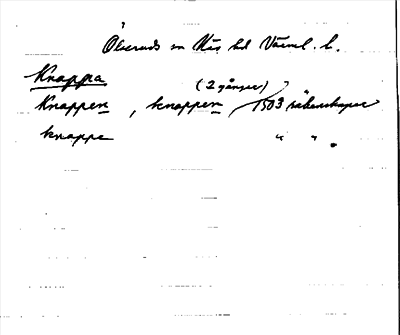 Ölseruds sn Näs hd Värml. l.
Knappa
(2 gånger)
Knappen, knappen 1503 räkenskaper
knappe " "